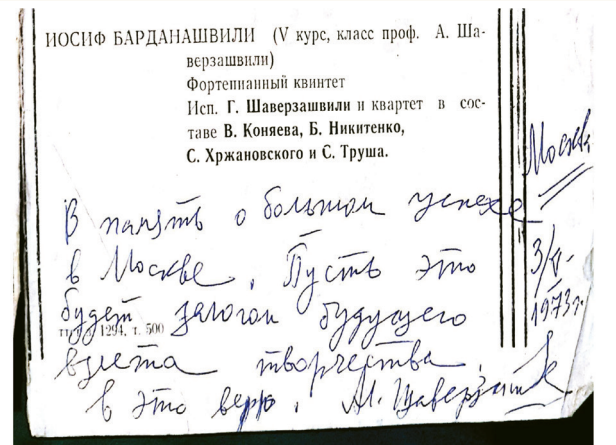 ИОСИФ БАРДАНАШВИЛИ (V курс, класс проф. А. Ша-
верзашвили)
Фортепианный квинтет
Исп. Г. Шаверзашвили и квартет в сос-
таве В. Коняева, Б. Никитенко,
С. Хржановского и С. Труша.
Москва
В память о большом успехе
в Москве. Пусть это
3/V-
будет залогом будущего
1973 г.
1294, т. 500
взлета творчества.
в это верю.